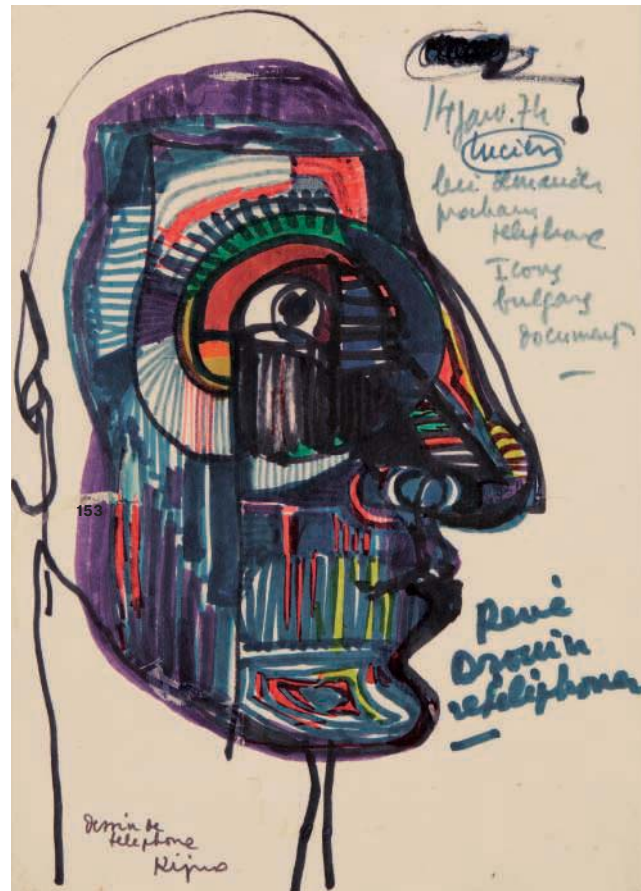 14 janv. 74
Lucien
lui demander
prochain
telephone
Icons
bulgars
document
153
René
Drouin
retéléphoner
dessin de
telephone
Kijno